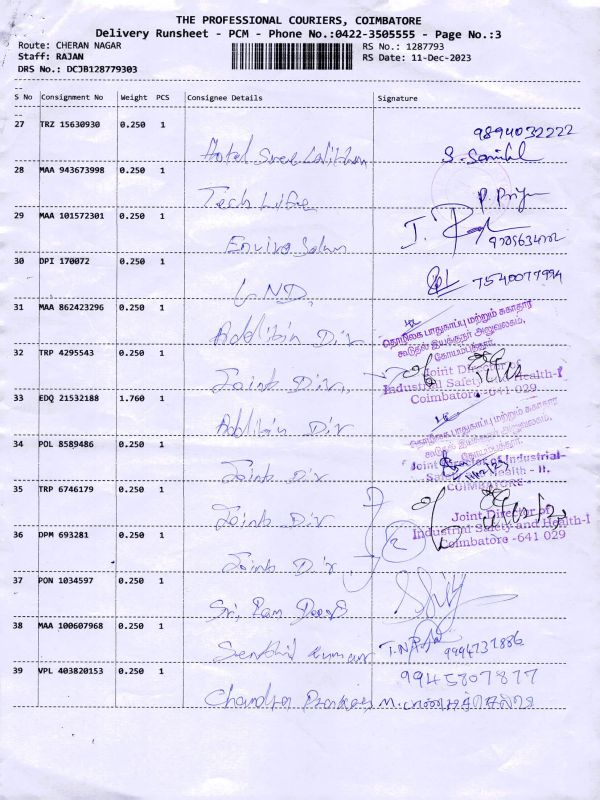 THE PROFESSIONAL COURIERS, COIMBATORE
Delivery Runsheet - PCM - Phone No.:0422-3505555 - Page No.:3
Route: CHERAN NAGAR RS No.: 1287793
Staff: RAJAN RS Date: 11-Dec-2023
DRS No.: DCJB128779303
S No Consignment No Weight PCS Consignee Details Signature
27 TRZ 15630930 0.250 1 9894032222
Hotel Sree
28 MAA 943673998 0.250 1
Tech Life P. Priya
29 MAA 101572301 0.250 1
Enviro
30 DPI 170072 0.250 1 7540077994
31 MAA 862423296 0.250 1
தொழிலக பாதுகாப்பு மற்றும் சுகாதார
கூடுதல் இயக்குநர் அலுவலகம்,
கோயம்புத்தூர்.
Dir
32 TRP 4295543 0.250 1
Joint Director of
Industrial Safety Health-I
Coimbatore -641 029.
Joint Dir
33 EDQ 21532188 1.760 1
தொழிலக பாதுகாப்பு மற்றும் சுகாதார
கூடுதல் இயக்குநர் அலுவலகம்,
கோயம்புத்தூர்.
Dir
34 POL 8589486 0.250 1
Joint Director of Industrial
Health - II.
COIMBATORE
Joint Dir
35 TRP 6746179 0.250 1
Joint Dir
Joint Director of
Industrial Safety and Health-I
Coimbatore -641 029
36 DPM 693281 0.250 1
2
Joint Dir
37 PON 1034597 0.250 1
Sri Ram
38 MAA 100607968 0.250 1
Senthil Kumar 9994737886
39 VPL 403820153 0.250 1 9945807877
Chandra